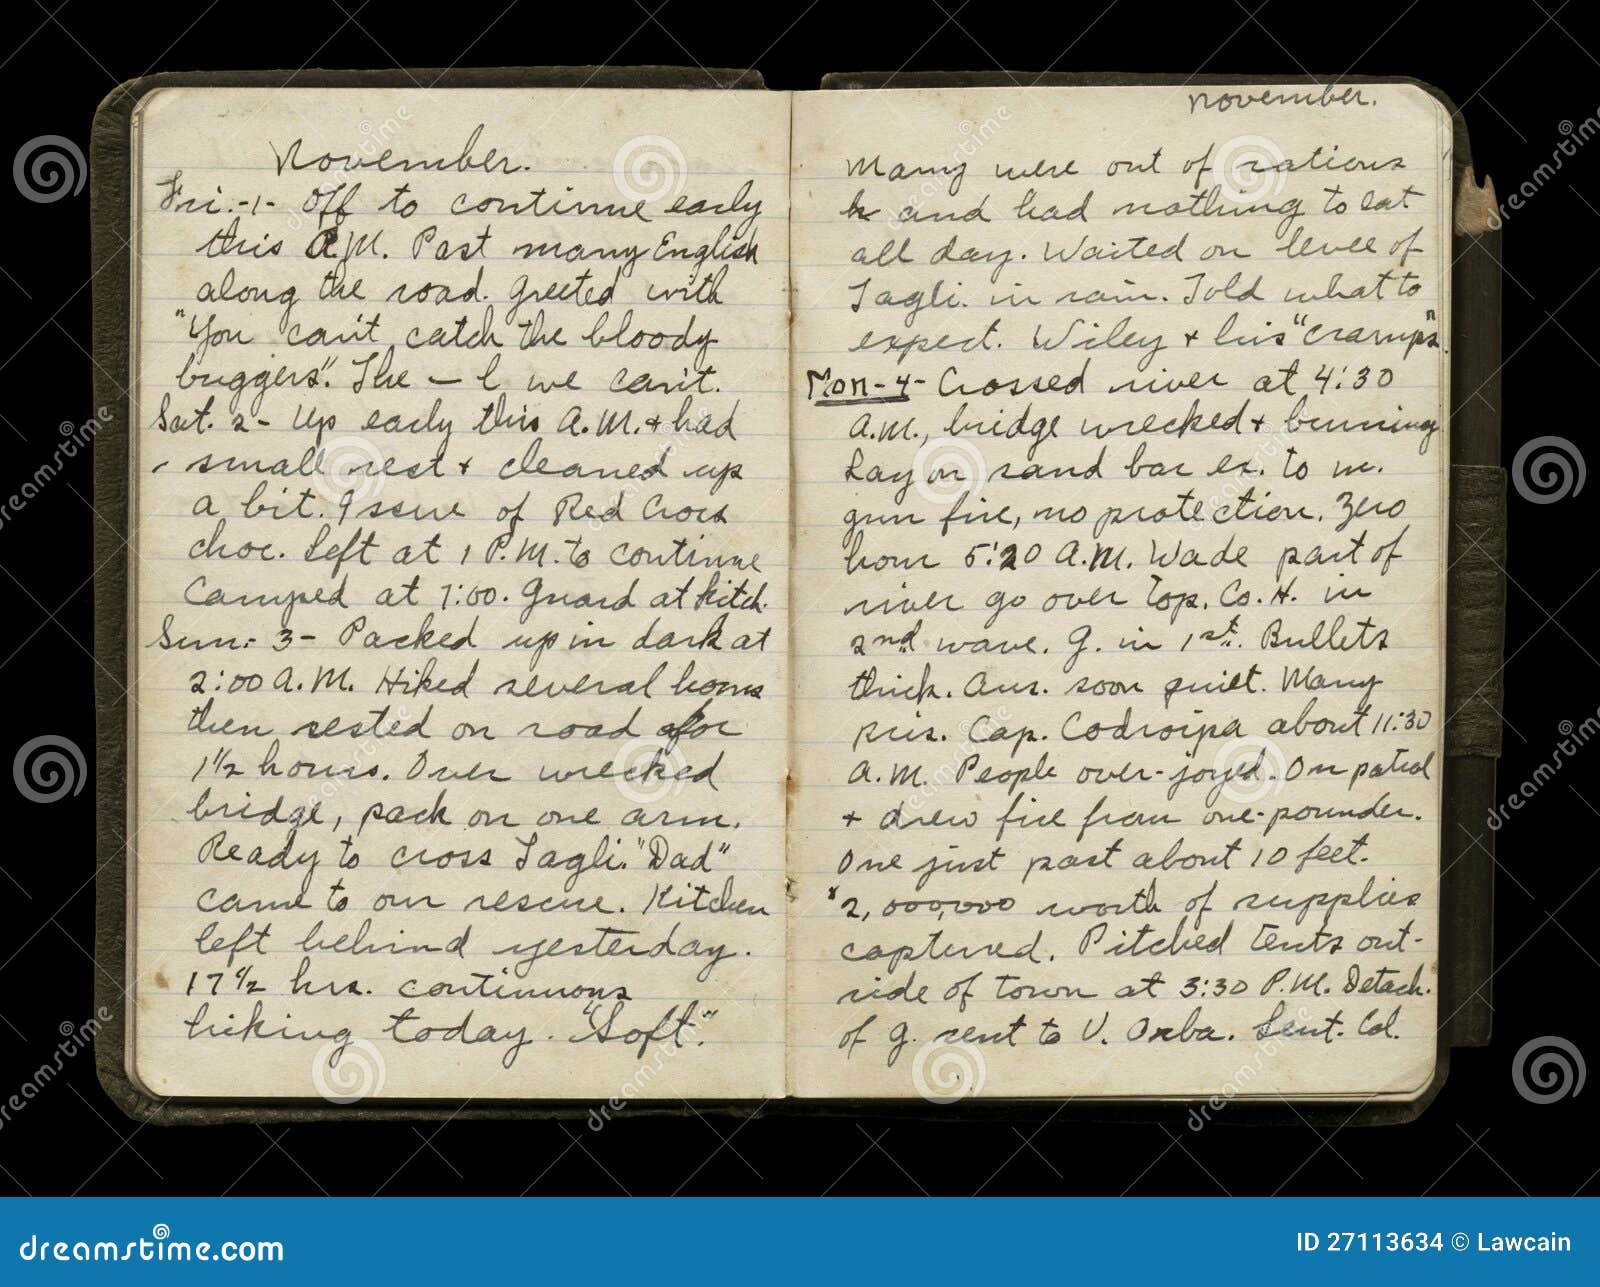 November.
Fri.-1- Off to continue early
this A.M. Past many English
along the road. Greeted with
"You can't catch the bloody
buggers". The — l we can't.
Sat. 2- Up early this A.M. + had
small rest + cleaned up
a bit. Issue of Red Cross
choc. Left at 1 P.M. to continue
Camped at 7:00. Guard at kitch.
Sun:- 3- Packed up in dark at
2:00 A.M. Hiked several hours
then rested on road for
1½ hours. Over wrecked
bridge, pack on one arm.
Ready to cross Tagli. "Dad"
came to our rescue. Kitchen
left behind yesterday.
17½ hrs. continuous
hiking today. "Soft".
November.
Many were out of rations
and had nothing to eat
all day. Waited on levee of
Tagli. in rain. Told what to
expect. Wiley + his "cramps".
Mon-4- Crossed river at 4:30
A.M., bridge wrecked + burning
Lay on sand bar ex. to m.
gun fire, no protection. Zero
hour 5:20 A.M. Wade part of
river go over Top. Co. H. in
2nd wave. G. in 1st. Bullets
thick. Aus. soon quiet. Many
pris. Cap. Codroipa about 11:30
A.M. People over-joyed. On patrol
+ drew fire from one-pounder.
One just past about 10 feet.
2,000,000 worth of supplies
captured. Pitched tents out-
side of town at 3:30 P.M. Detach.
of G. sent to V. Orba. Sent. Col.
dreamstime.com
ID 27113634 © Lawcain